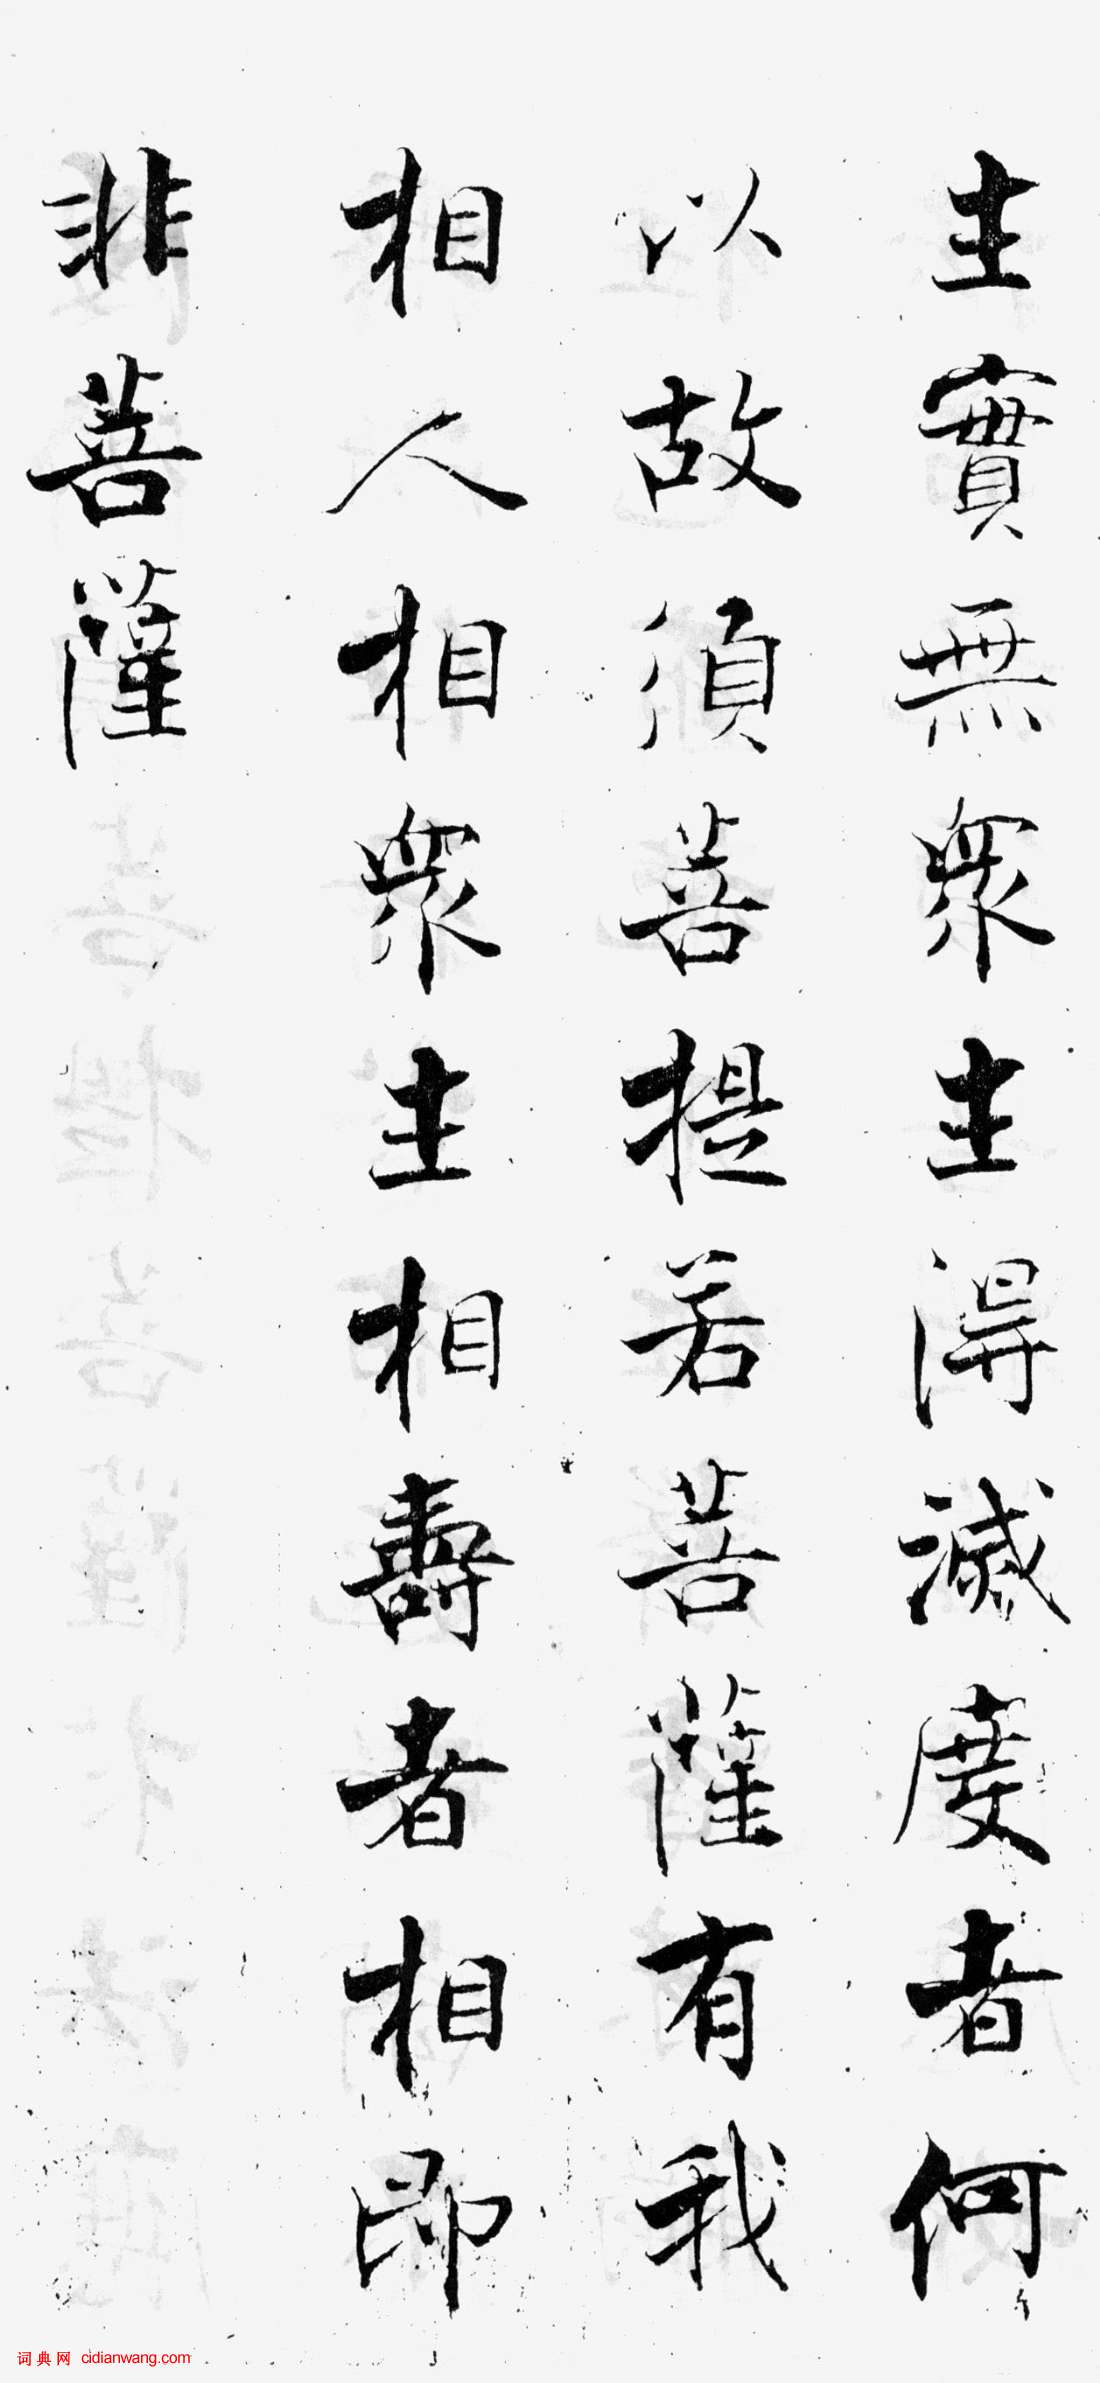 生實無衆生得滅度者何
以故須菩提若菩薩有我
相人相衆生相壽者相即
非菩薩
词典网 cidianwang.com